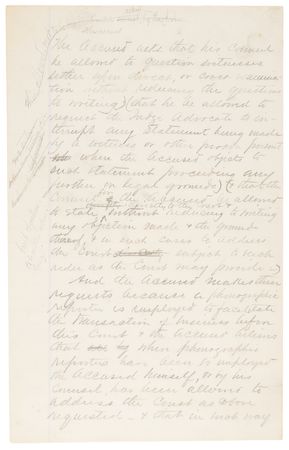 The Accused asks that his Counsel
be allowed to question witnesses
either upon direct, or cross examina-
tion without reducing the questions
to writing, (that he be allowed to
request the Judge Advocate to in-
terrupt any statement being made
by a witness or other person present
when the Accused objects to
such statement proceeding any
further on legal grounds) & that the
Counsel of the Accused allowed
to state, without reducing to writing
any objection made & the grounds
thereof, & in such cases to address
the Court subject to such
rules as the Court may provide.
And the Accused makes these
requests because a phonographic
reporter is employed to facilitate
the transaction of business before
this Court & the Accused
that when phonographic
reporters have been so employed
the Accused himself, or by his
Counsel, has been allowed to
address the Court as above
requested - & that in such way